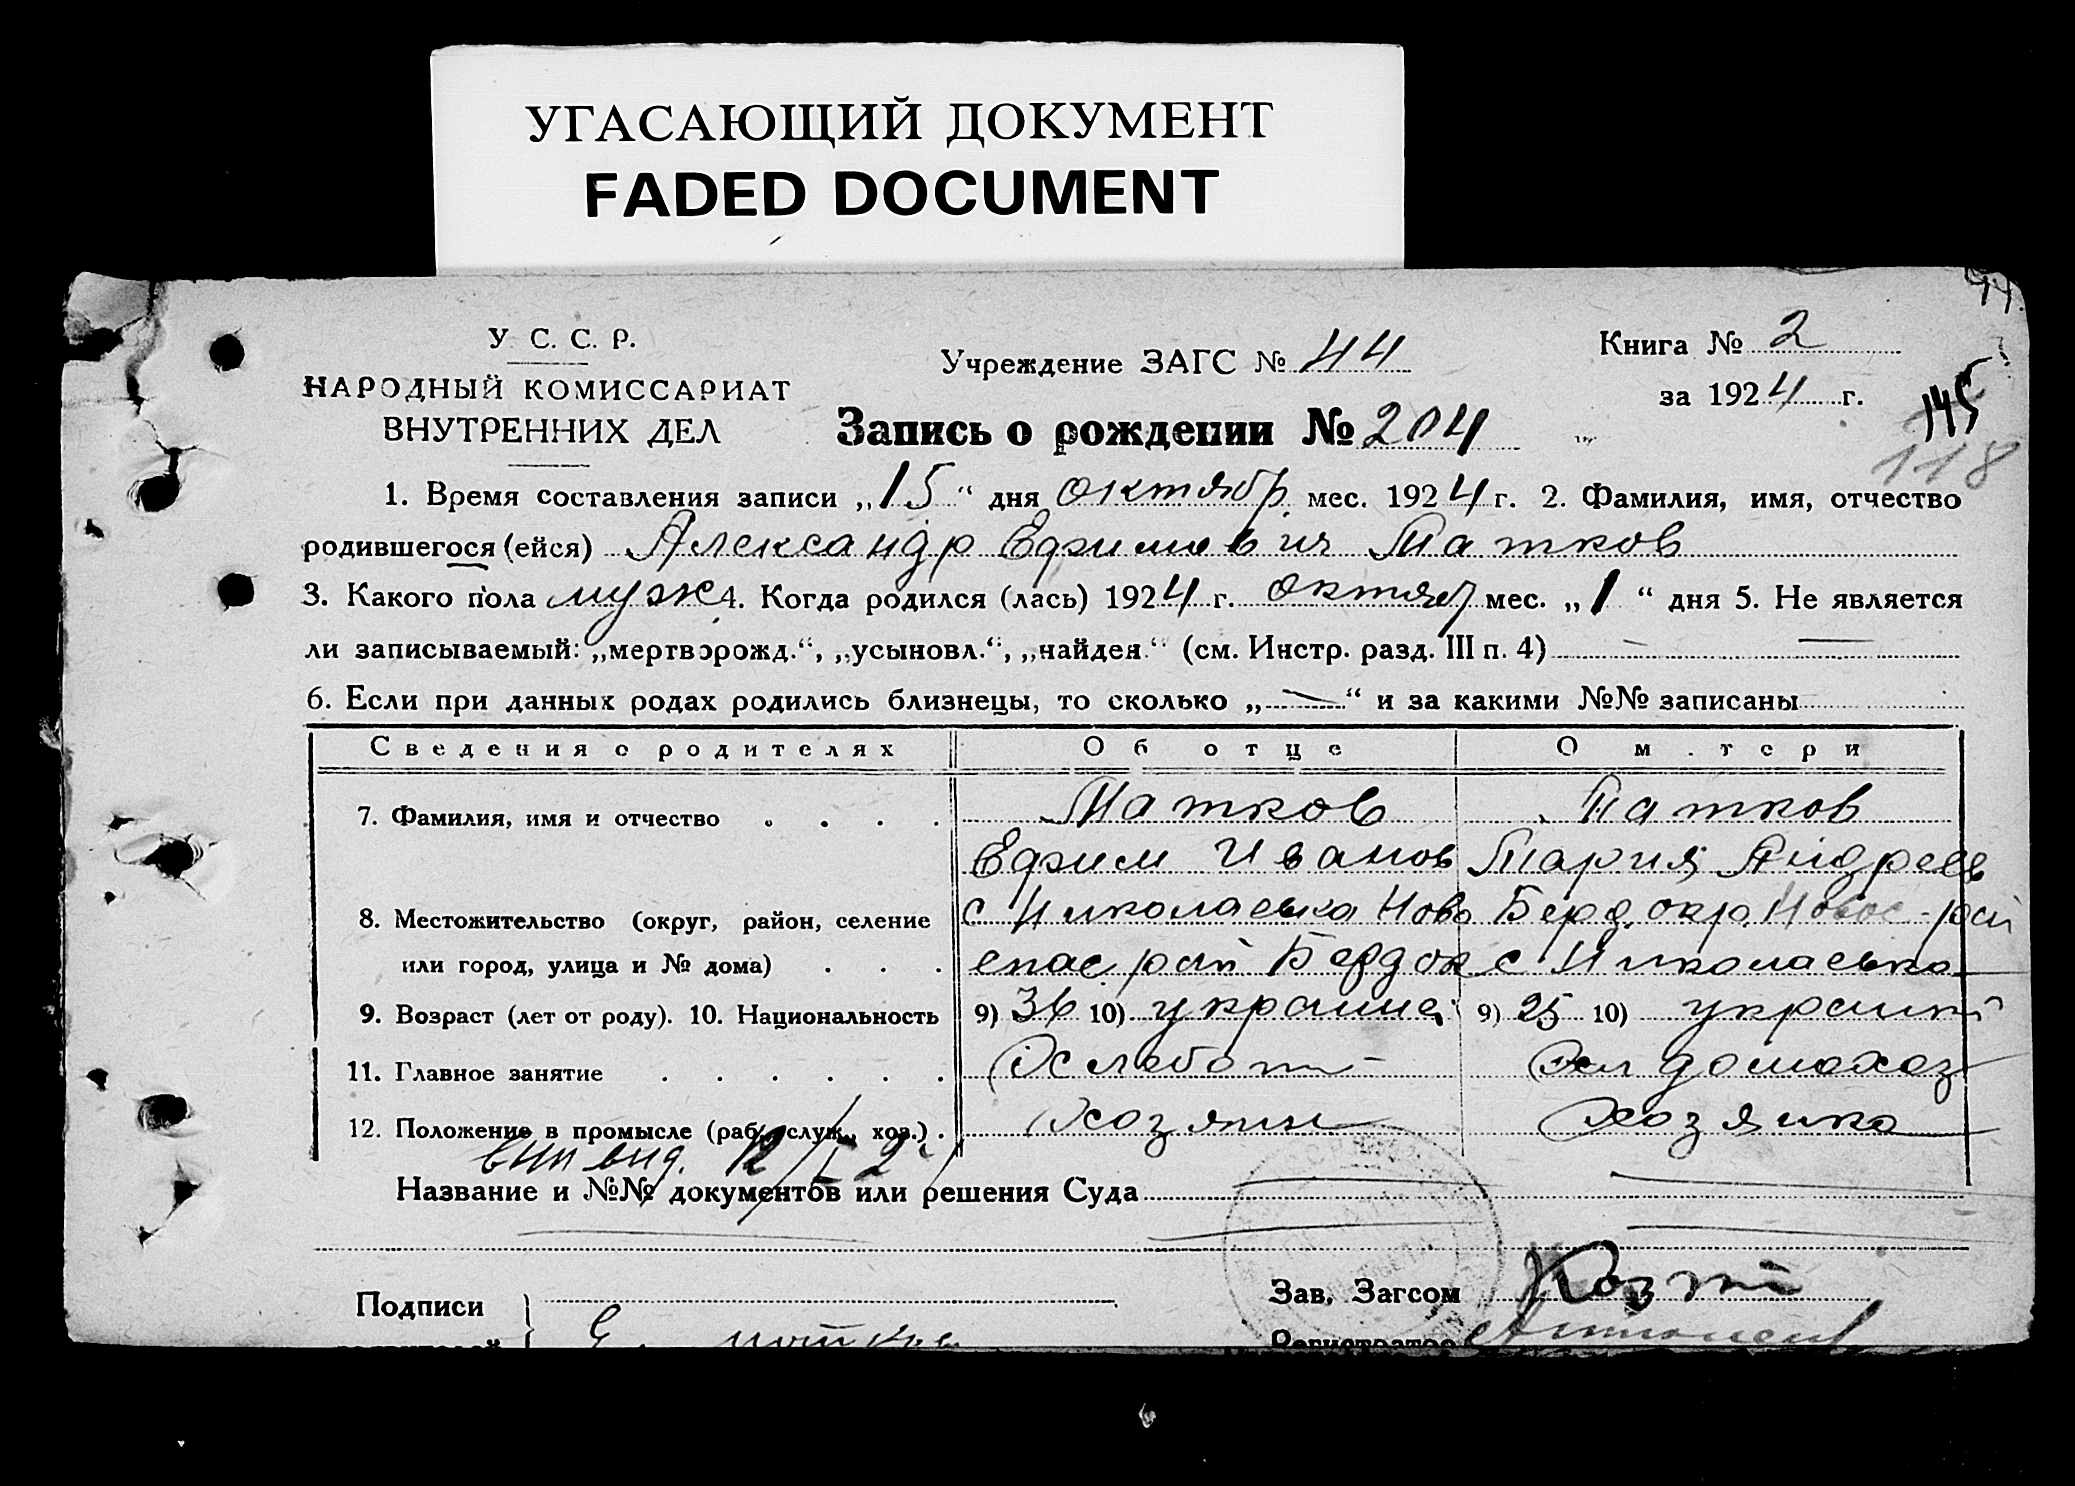 УГАСАЮЩИЙ ДОКУМЕНТ
FADED DOCUMENT
У. С. С. Р.
НАРОДНЫЙ КОМИССАРИАТ
ВНУТРЕННИХ ДЕЛ
Учреждение ЗАГС № 44
Книга № 2
за 1924 г.
145
118
Запись о рождении № 204
1. Время составления записи „15“ дня октябр. мес. 1924 г. 2. Фамилия, имя, отчество
родившегося (ейся) Александр Ефимович Матков
3. Какого пола муж 4. Когда родился (лась) 1924 г. октяб мес. „1“ дня 5. Не является
ли записываемый: „мертворожд.“, „усыновл.“, „найден.“ (см. Инстр. разд. III п. 4) —
6. Если при данных родах родились близнецы, то сколько „—“ и за какими №№ записаны
Сведения о родителях Об отце О м.тери
7. Фамилия, имя и отчество . . . . Матков Матков
Ефим Иванов Мария Андреев
8. Местожительство (округ, район, селение с Николаевка Ново Берд. окр. Новос- рай
или город, улица и № дома) . . . спас. рай Бердок с Николаевка
9. Возраст (лет от роду). 10. Национальность 9) 36 10) украинец 9) 25 10) украинк
11. Главное занятие . . . . . . Хлебопаш домохоз
12. Положение в промысле (раб., служ., хоз.) . Хозяин Хозяйка
выд. 12/I
Название и №№ документов или решения Суда
Подписи
Зав. Загсом
Регистратор